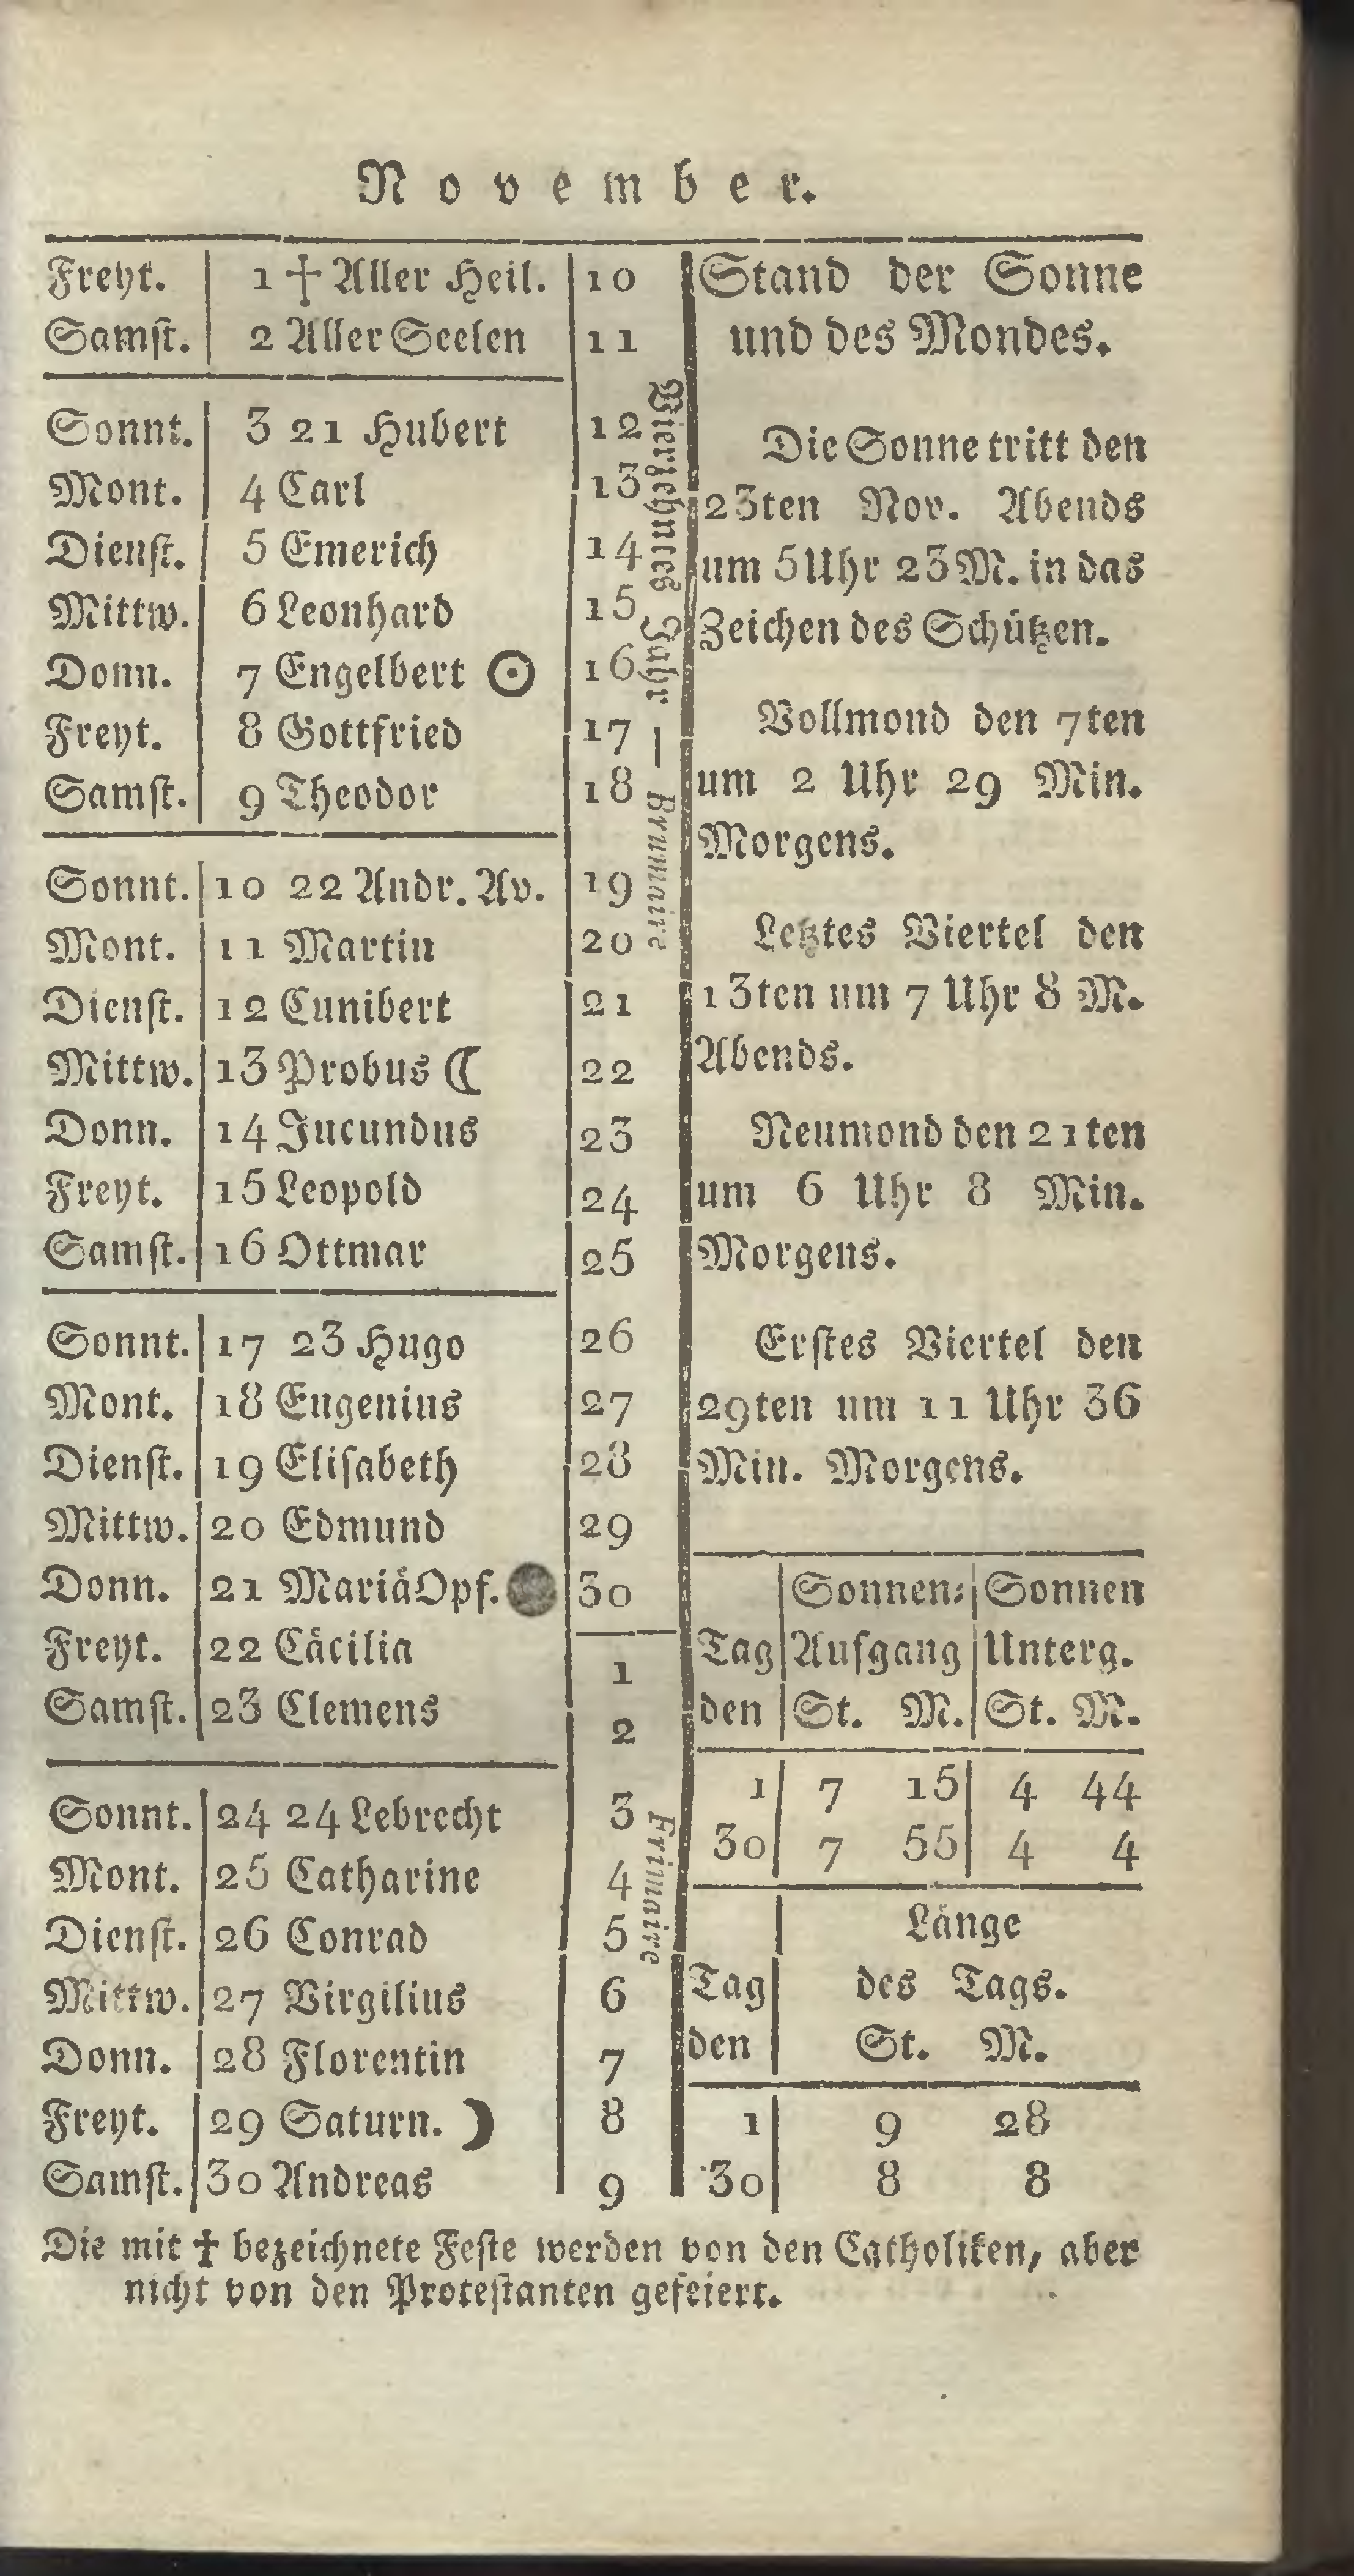 November.
Freyt. 1 † Aller Heil. 10
Samſt. 2 Aller Seelen 11
Sonnt. 3 21 Hubert 12
Mont. 4 Carl 13
Dienſt. 5 Emerich 14
Mittw. 6 Leonhard 15
Donn. 7 Engelbert ☉ 16
Freyt. 8 Gottfried 17
Samſt. 9 Theodor 18
Sonnt. 10 22 Andr. Av. 19
Mont. 11 Martin 20
Dienſt. 12 Cunibert 21
Mittw. 13 Probus ☾ 22
Donn. 14 Jucundus 23
Freyt. 15 Leopold 24
Samſt. 16 Ottmar 25
Sonnt. 17 23 Hugo 26
Mont. 18 Eugenius 27
Dienſt. 19 Eliſabeth 28
Mittw. 20 Edmund 29
Donn. 21 Mariä Opf. ● 30
Freyt. 22 Cäcilia 1
Samſt. 23 Clemens 2
Sonnt. 24 24 Lebrecht 3
Mont. 25 Catharine 4
Dienſt. 26 Conrad 5
Mittw. 27 Virgilius 6
Donn. 28 Florentin 7
Freyt. 29 Saturn. ☽ 8
Samſt. 30 Andreas 9
Vierzehntes Jahr — Brumaire
Frimaire
Stand der Sonne
und des Mondes.
Die Sonne tritt den
23ten Nov. Abends
um 5 Uhr 23 M. in das
Zeichen des Schützen.
Vollmond den 7ten
um 2 Uhr 29 Min.
Morgens.
Letztes Viertel den
13ten um 7 Uhr 8 M.
Abends.
Neumond den 21ten
um 6 Uhr 8 Min.
Morgens.
Erſtes Viertel den
29ten um 11 Uhr 36
Min. Morgens.
Sonnen⸗ Sonnen
Tag Aufgang Unterg.
den St. M. St. M.
1 7 15 4 44
30 7 55 4 4
Länge
Tag des Tags.
den St. M.
1 9 28
30 8 8
Die mit † bezeichnete Feſte werden von den Catholiken, aber
nicht von den Proteſtanten gefeiert.